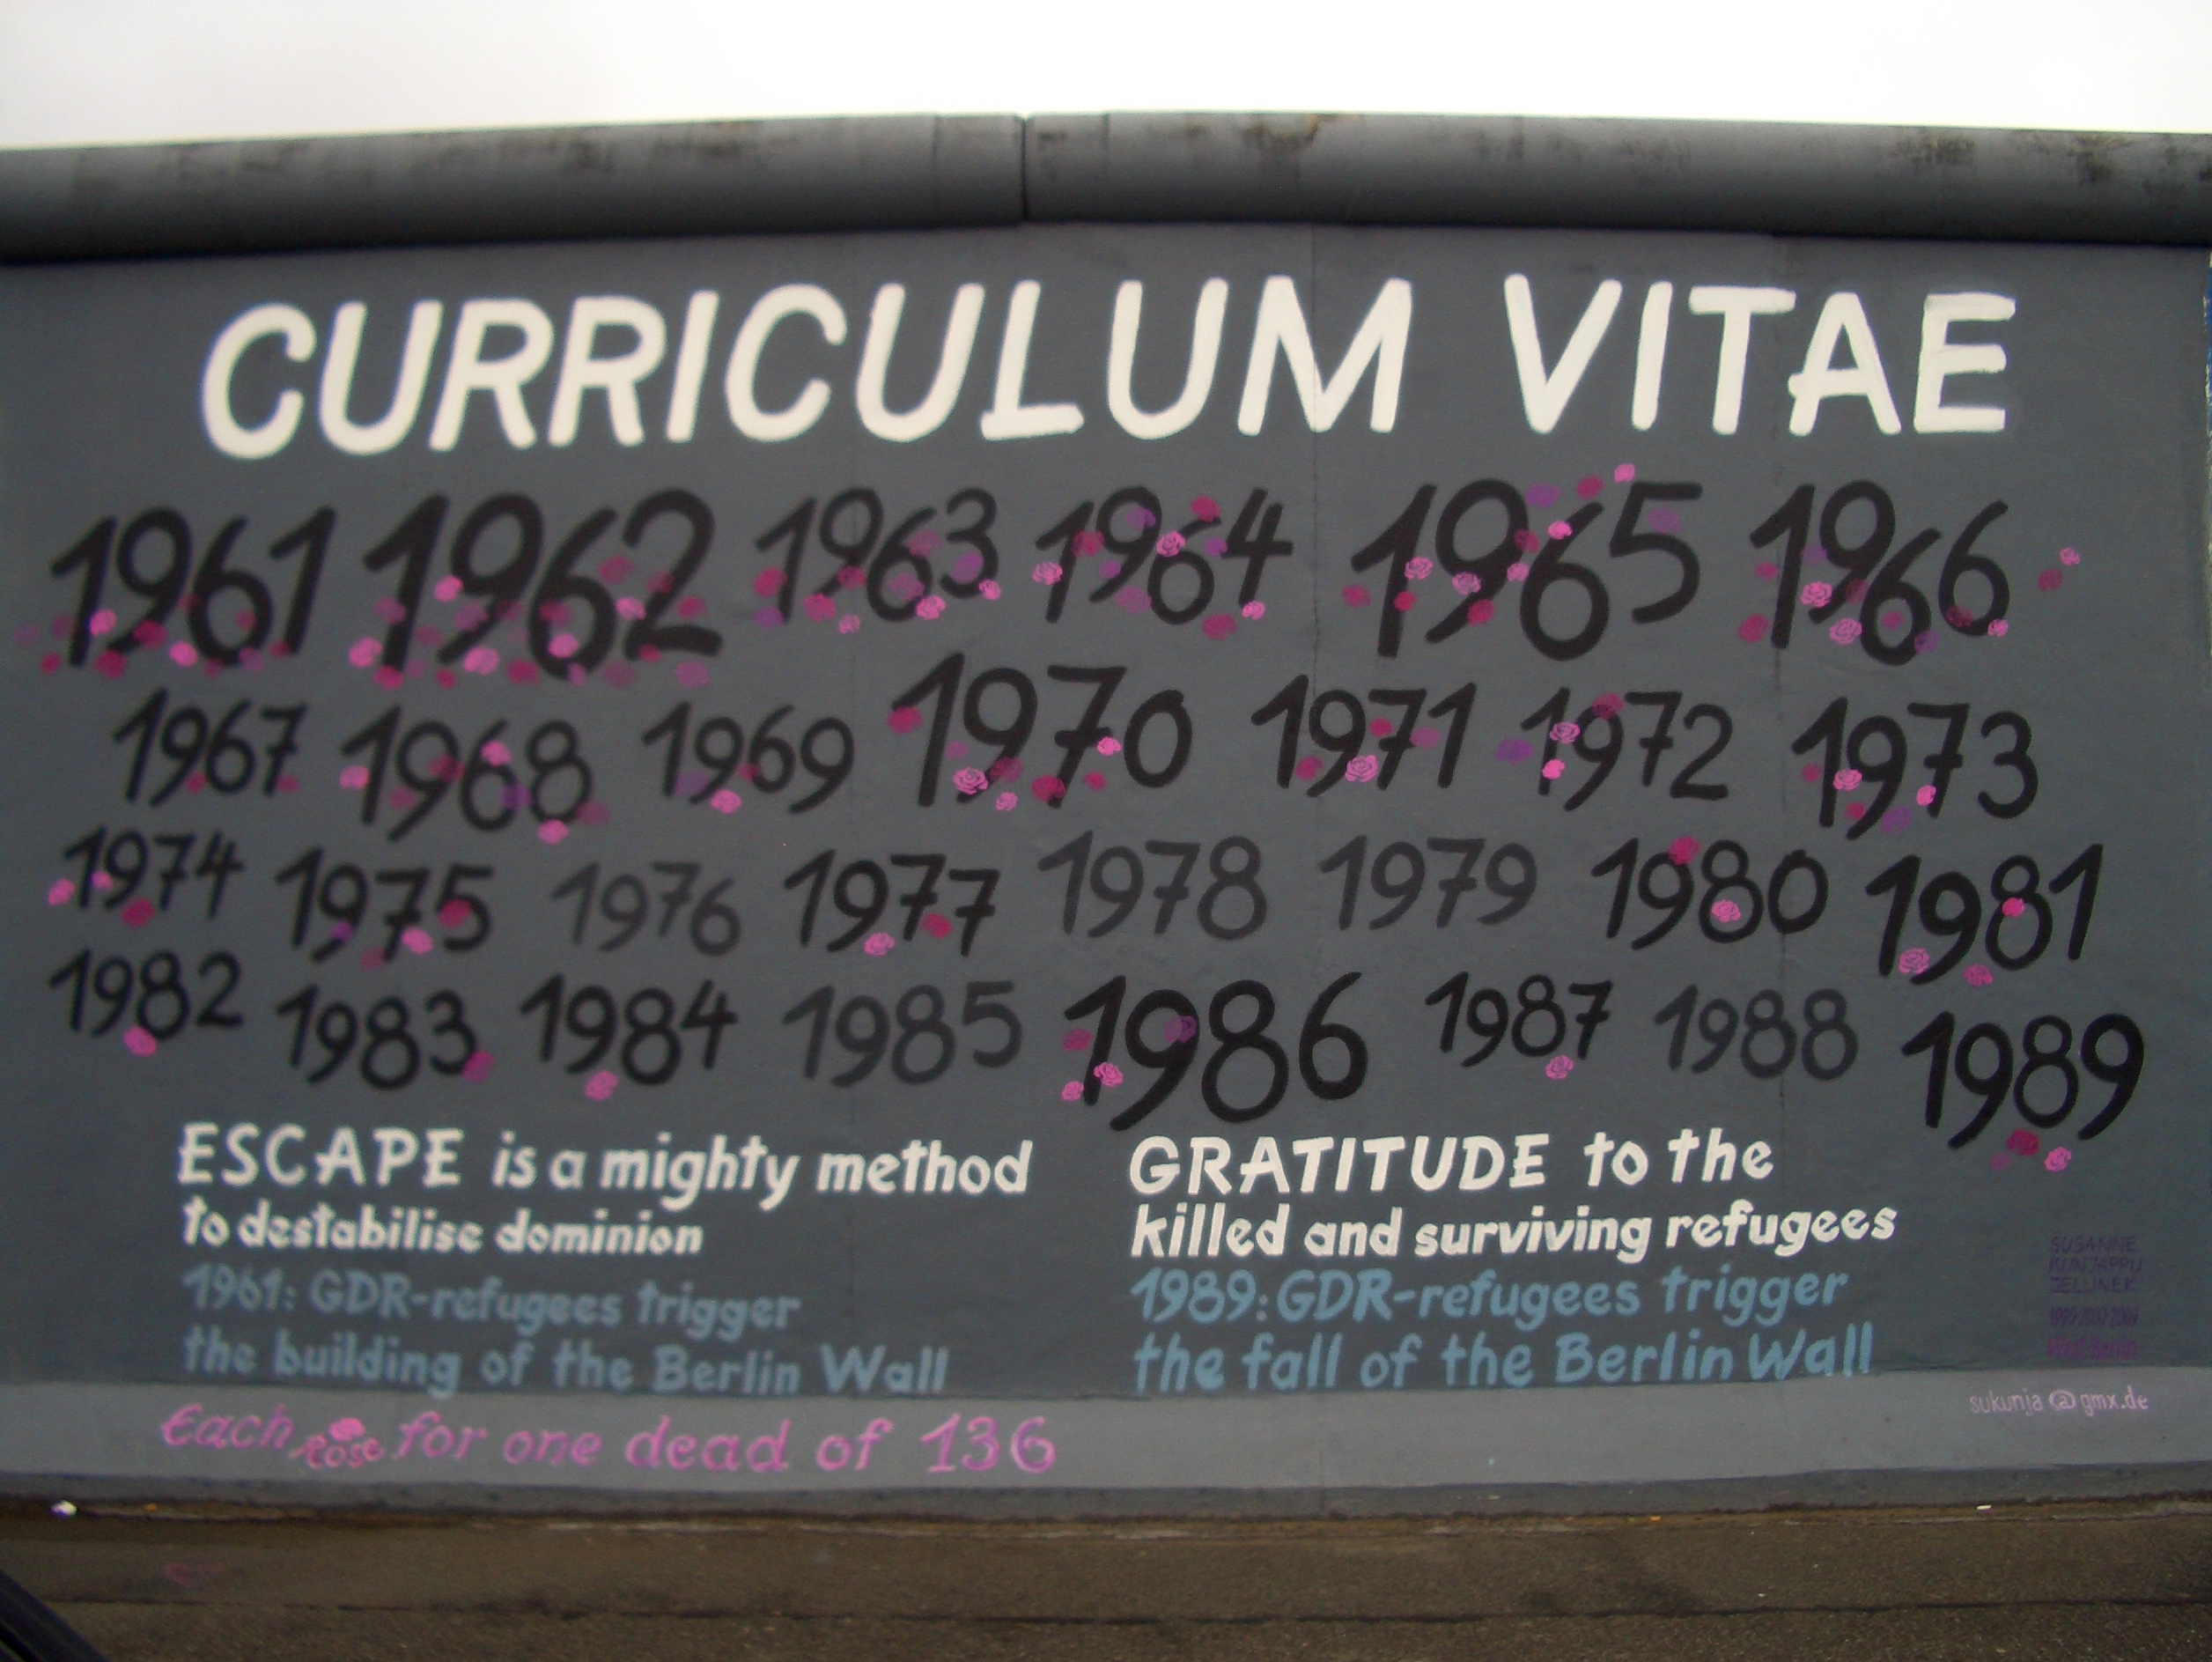 CURRICULUM VITAE
1961 1962 1963 1964 1965 1966
1967 1968 1969 1970 1971 1972 1973
1974 1975 1976 1977 1978 1979 1980 1981
1982 1983 1984 1985 1986 1987 1988 1989
ESCAPE is a mighty method
to destabilise dominion
1961: GDR-refugees trigger
the building of the Berlin Wall
GRATITUDE to the
killed and surviving refugees
1989: GDR-refugees trigger
the fall of the Berlin Wall
SUSANNE
KUNJAPPU
JELLINEK
sukunja@gmx.de
Each Rose for one dead of 136